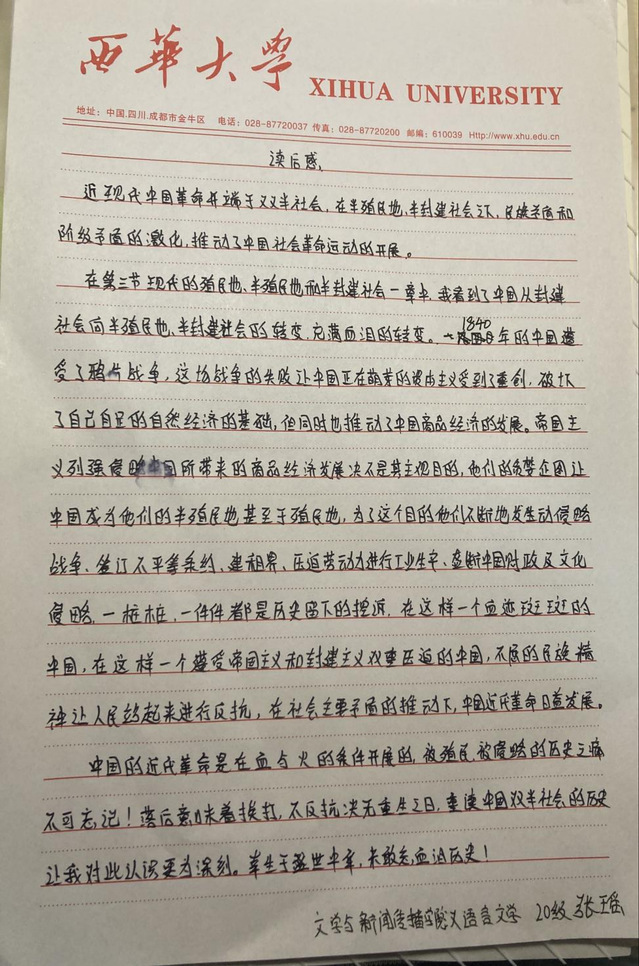 西華大学
XIHUA UNIVERSITY
地址：中国.四川.成都市金牛区 电话：028-87720037 传真：028-87720200 邮编：610039 Http://www.xhu.edu.cn
读后感、
近现代中国革命开端于双半社会，在半殖民地、半封建社会之下，民族矛盾和
阶级矛盾的激化，推动了中国社会革命运动的开展。
在第三节现代的殖民地、半殖民地和半封建社会一章中，我看到了中国从封建
社会向半殖民地、半封建社会的转变，充满血泪的转变。1840年的中国遭
受了鸦片战争，这场战争的失败让中国正在萌芽的资本主义受到了重创，破坏
了自己自足的自然经济的基础，但同时也推动了中国商品经济的发展。帝国主
义列强侵略中国所带来的商品经济发展决不是其主观目的，他们的贪婪企图让
中国成为他们的半殖民地甚至于殖民地，为了这个目的他们不断地发生动侵略
战争、签订不平等条约、建租界、压迫劳动力进行工业生产、垄断中国财政及文化
侵略，一桩桩，一件件都是历史留下的控诉，在这样一个血迹斑斑的
中国，在这样一个遭受帝国主义和封建主义双重压迫的中国，不屈的民族精
神让人民终起来进行反抗，在社会主要矛盾的推动下，中国近代革命日益发展。
中国的近代革命是在血与火的条件开展的，被殖民被侵略的历史之痛
不可忘记！落后意味着挨打，不反抗决无重生之日，重读中国双半社会的历史
让我对此认识更为深刻。幸生于盛世中章，未敢忘血泪历史！
文学与新闻传播学院汉语言文学 20级 张瑶